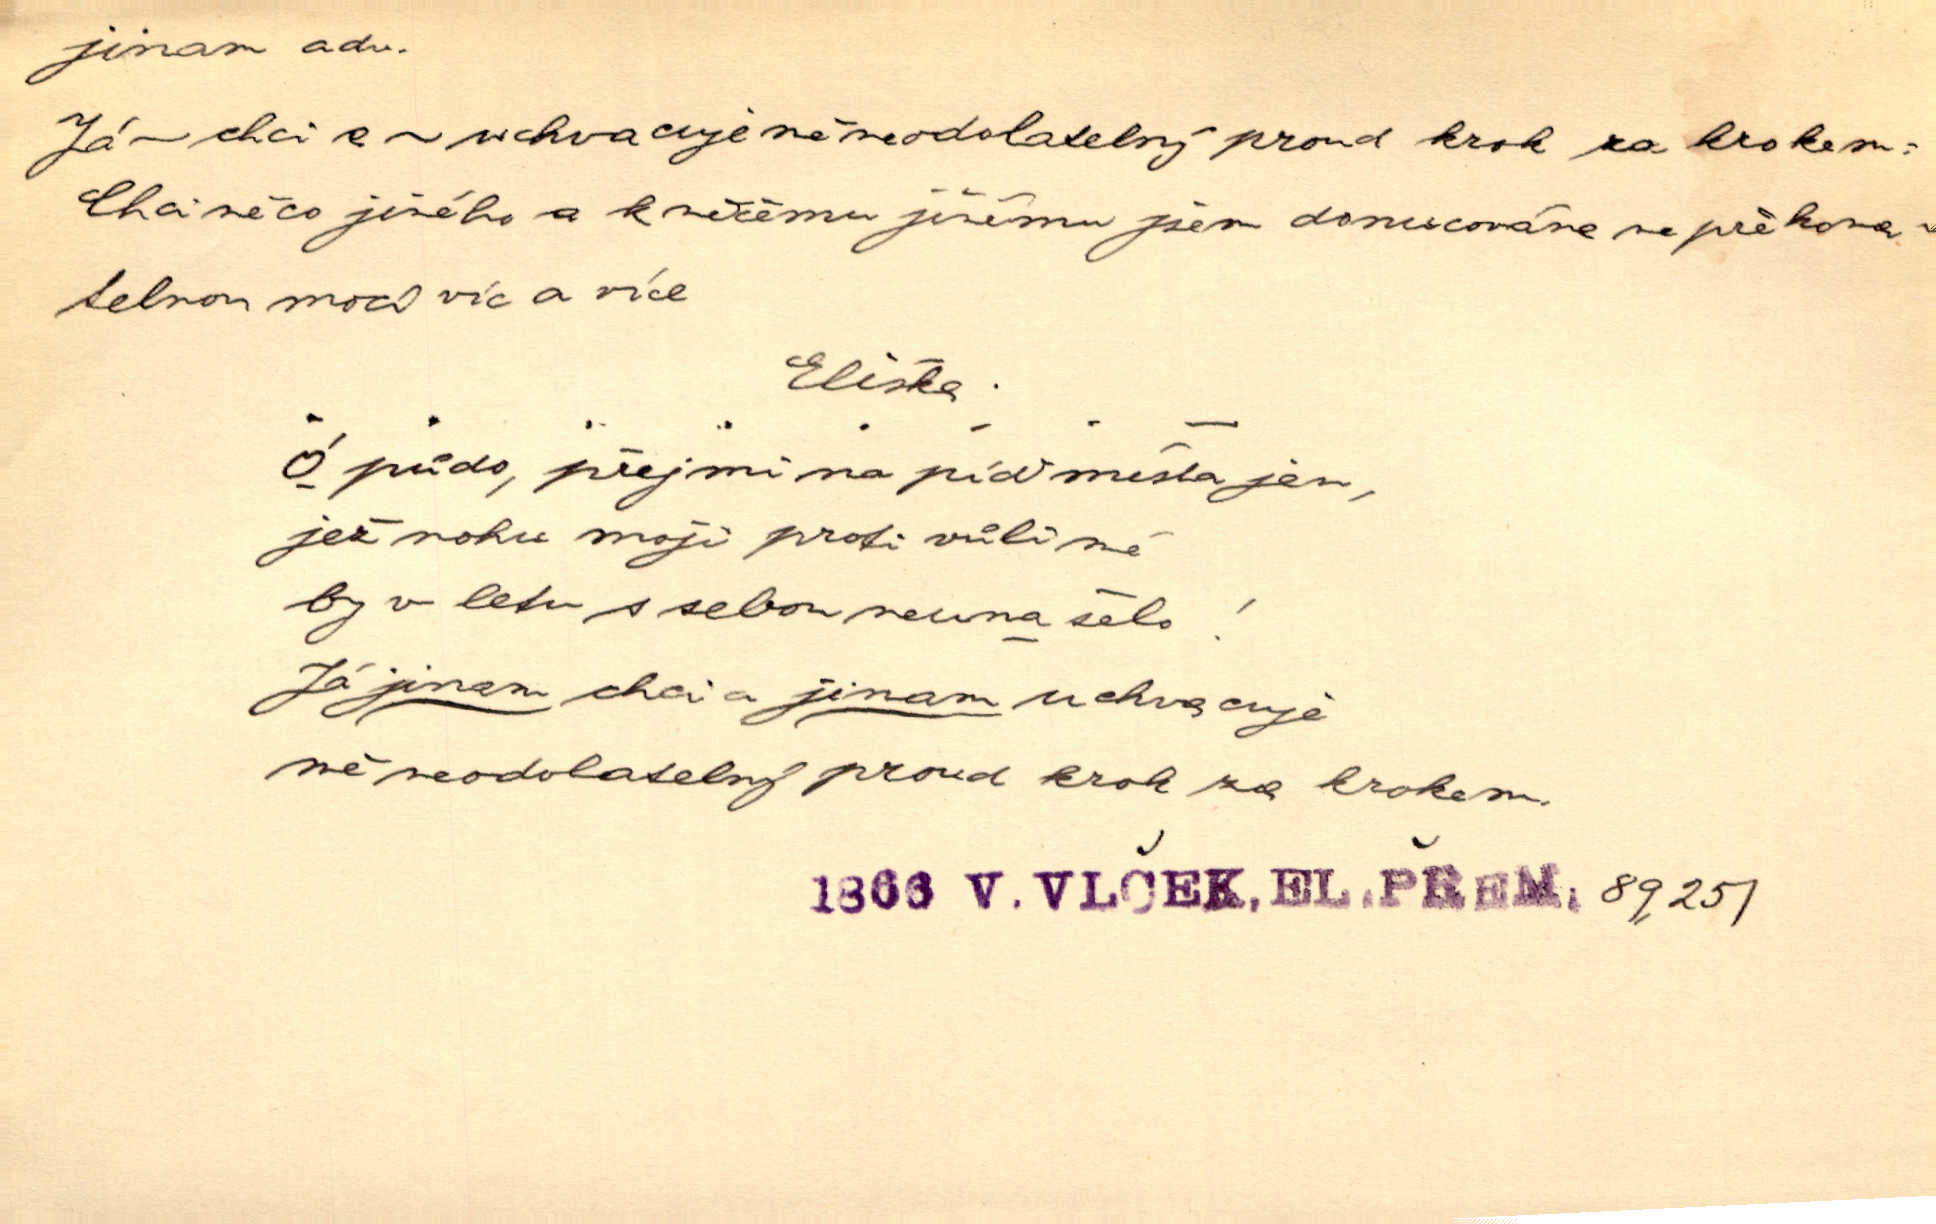 jinam adv.
Já ~ chci a ~ uchvacuje mě neodolatelný proud krok za krokem:
Chci něco jiného a k něčemu jinému jsem donucována nepřekona-
telnou mocí víc a více
Eliška.
Ó půdo, přej mi na píď místa jen,
jež nohu moji proti vůli mé
by v letu s sebou neunášelo!
Já jinam chci a jinam uchvacuje
mě neodolatelný proud krok za krokem.
1866 V. VLČEK, EL. PŘEM. 89,251